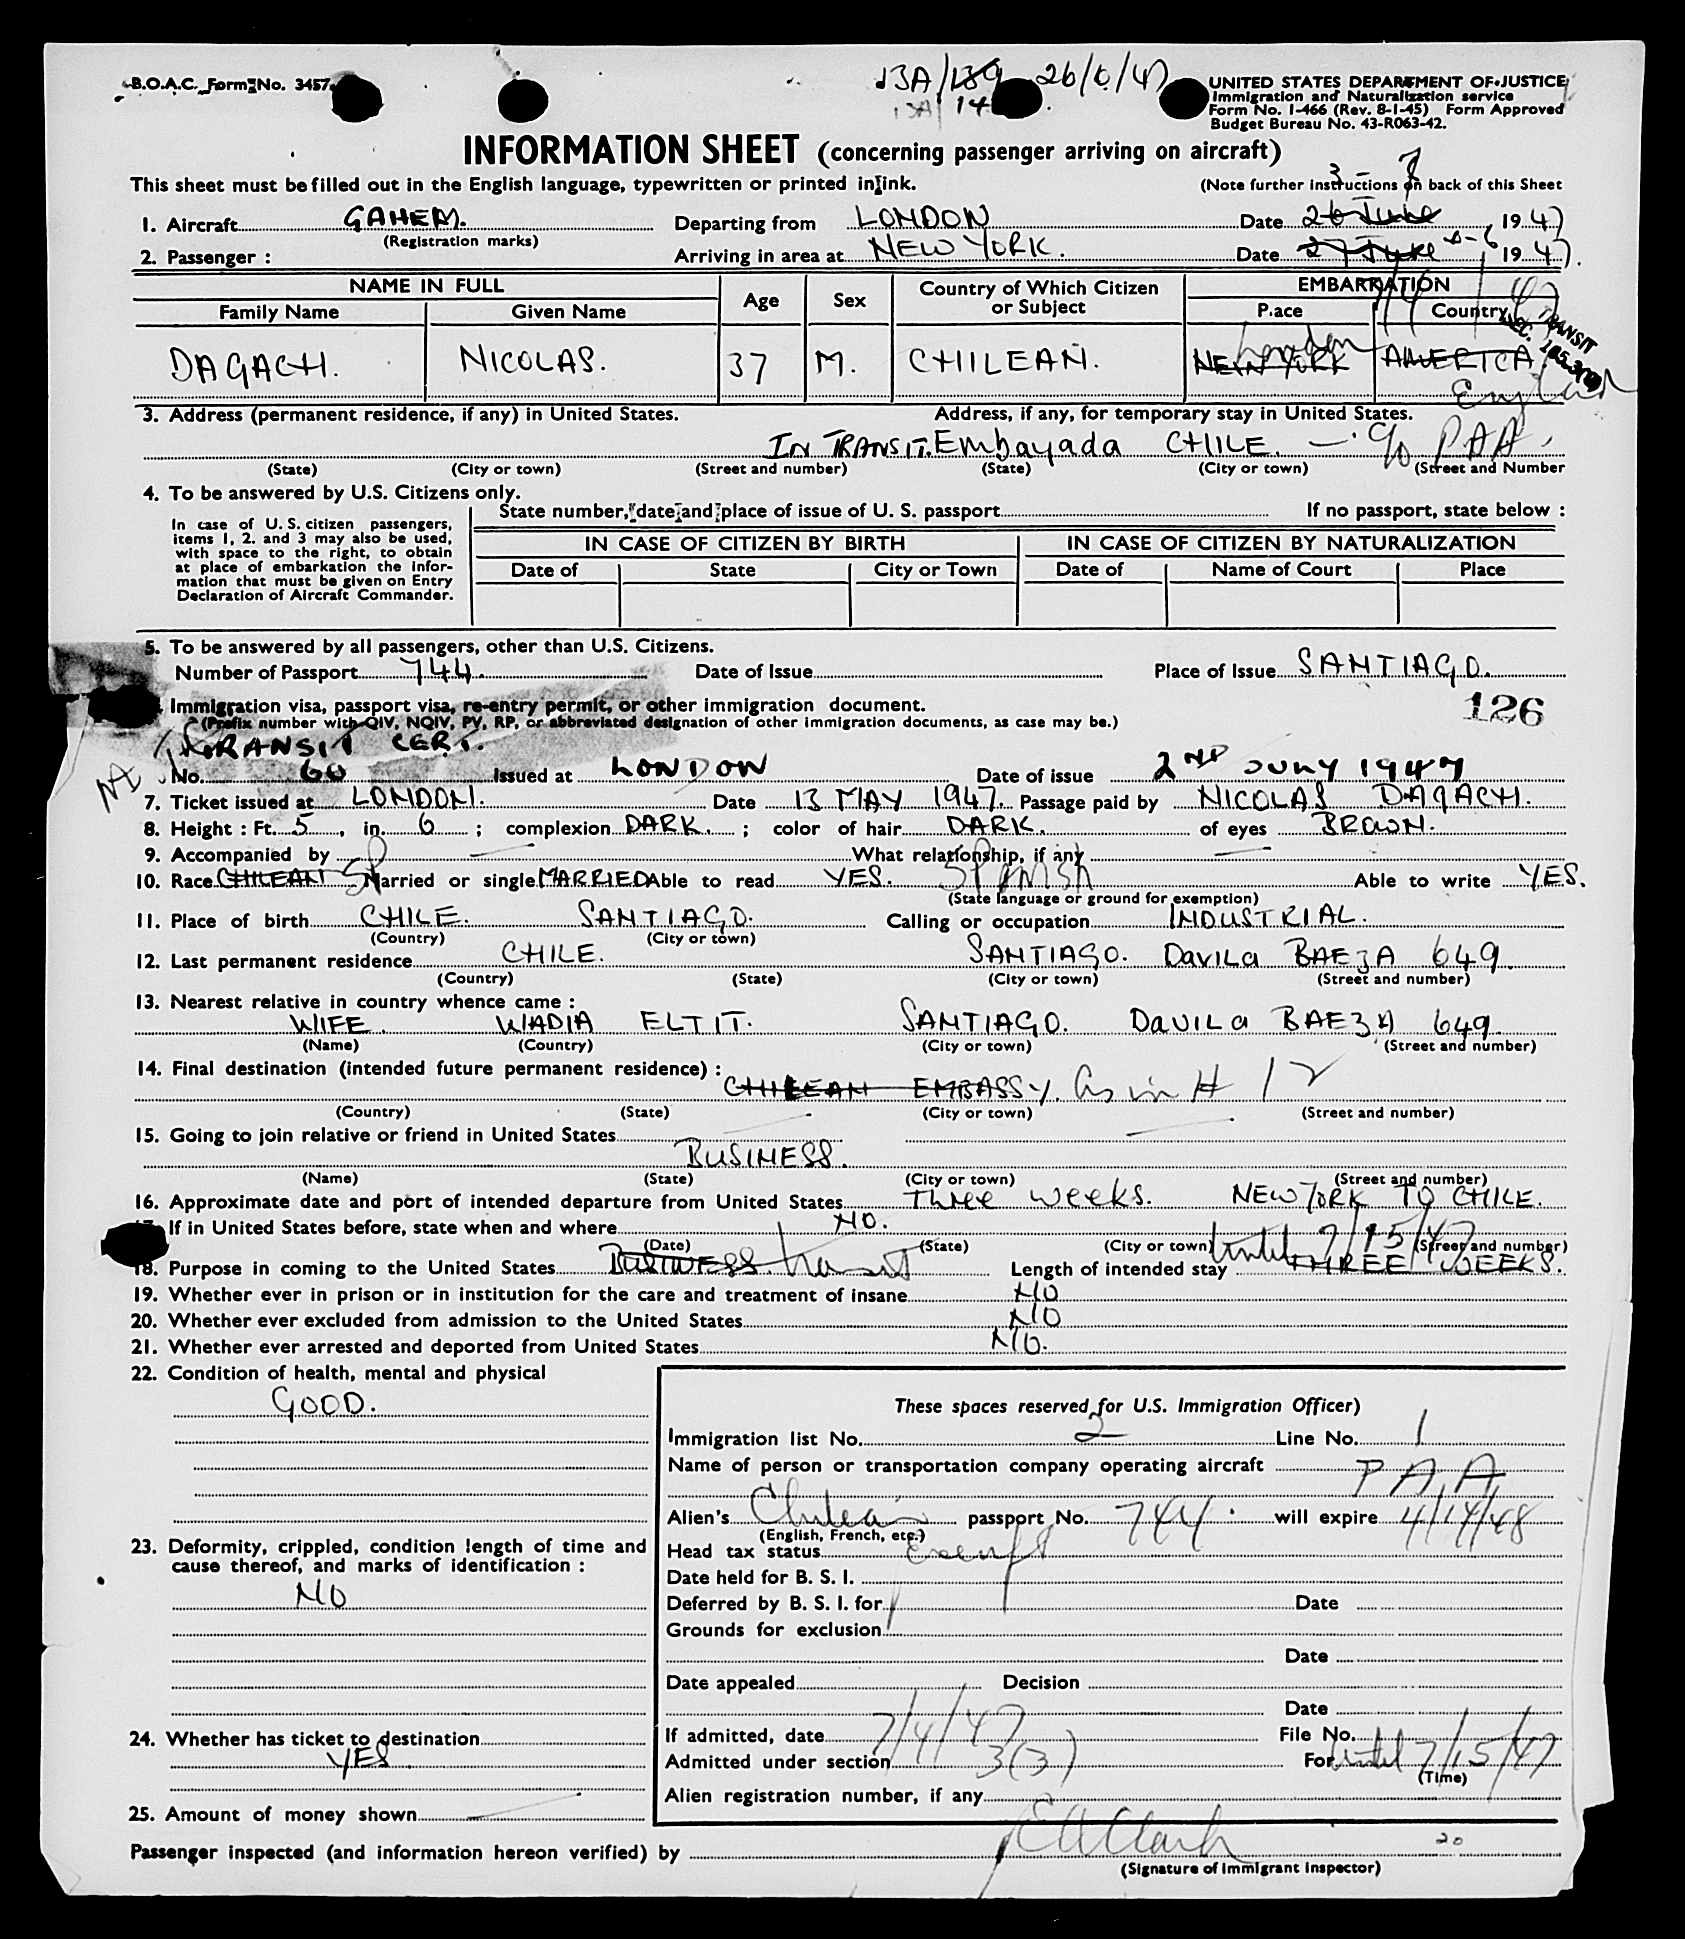 B.O.A.C. Form No. 3457
13A/139 26/6/47
13A/14
UNITED STATES DEPARTMENT OF JUSTICE
Immigration and Naturalization service
Form No. I-466 (Rev. 8-1-45) Form Approved
Budget Bureau No. 43-R063-42.
INFORMATION SHEET (concerning passenger arriving on aircraft)
This sheet must be filled out in the English language, typewritten or printed in ink.
(Note further instructions on back of this Sheet
3-7
1. Aircraft GAHEM. Departing from LONDON Date 26 June, 1947
(Registration marks)
2. Passenger : Arriving in area at NEW YORK. Date 27 June 1947.
NAME IN FULL Age Sex Country of Which Citizen or Subject EMBARKATION
Family Name Given Name Place Country
7/4/47
TRANSIT
DAGACH. NICOLAS. 37 M. CHILEAN. NEW YORK London AMERICA
England
3. Address (permanent residence, if any) in United States. Address, if any, for temporary stay in United States.
IN TRANSIT. Embayada CHILE. — c/o PAA
(State) (City or town) (Street and number) (State) (City or town) (Street and Number
4. To be answered by U.S. Citizens only.
State number, date and place of issue of U. S. passport If no passport, state below :
In case of U. S. citizen passengers,
items 1, 2. and 3 may also be used,
with space to the right, to obtain
at place of embarkation the infor-
mation that must be given on Entry
Declaration of Aircraft Commander.
IN CASE OF CITIZEN BY BIRTH IN CASE OF CITIZEN BY NATURALIZATION
Date of State City or Town Date of Name of Court Place
5. To be answered by all passengers, other than U.S. Citizens.
Number of Passport 744. Date of Issue Place of Issue SANTIAGO.
Immigration visa, passport visa, re-entry permit, or other immigration document.
126
(Prefix number with QIV, NQIV, PV, RP, or abbreviated designation of other immigration documents, as case may be.)
TRANSIT CERT.
No. 60 Issued at LONDON Date of issue 2ND JULY 1947
7. Ticket issued at LONDON. Date 13 MAY 1947. Passage paid by NICOLAS DAGACH.
8. Height : Ft. 5, in. 6 ; complexion DARK. ; color of hair DARK. of eyes BROWN.
9. Accompanied by — What relationship, if any —
10. Race CHILEAN Sp Married or single MARRIED Able to read YES. Spanish Able to write YES.
(State language or ground for exemption)
11. Place of birth CHILE. SANTIAGO. Calling or occupation INDUSTRIAL.
(Country) (City or town)
12. Last permanent residence CHILE. SANTIAGO. Davila BAEZA 649.
(Country) (State) (City or town) (Street and number)
13. Nearest relative in country whence came :
WIFE. WADIA ELTIT. SANTIAGO. DAVILA BAEZA 649.
(Name) (Country) (City or town) (Street and number)
14. Final destination (intended future permanent residence) :
CHILEAN EMBASSY. As in # 12
(Country) (State) (City or town) (Street and number)
15. Going to join relative or friend in United States
BUSINESS.
(Name) (State) (City or town) (Street and number)
16. Approximate date and port of intended departure from United States Three weeks. NEW YORK TO CHILE.
If in United States before, state when and where NO.
(Date) (State) (City or town) (Street and number)
18. Purpose in coming to the United States BUSINESS transit Length of intended stay THREE WEEKS. until 7/15/47
19. Whether ever in prison or in institution for the care and treatment of insane NO
20. Whether ever excluded from admission to the United States NO
21. Whether ever arrested and deported from United States NO.
22. Condition of health, mental and physical
GOOD.
These spaces reserved for U.S. Immigration Officer)
Immigration list No. 2 Line No. 1
Name of person or transportation company operating aircraft PAA
Alien's Chilean passport No. 744. will expire 4/14/48
(English, French, etc.)
23. Deformity, crippled, condition length of time and
cause thereof, and marks of identification :
NO
Head tax status Exempt
Date held for B. S. I.
Deferred by B. S. I. for Date
Grounds for exclusion
Date
Date appealed Decision
Date
24. Whether has ticket to destination
YES.
If admitted, date 7/4/47 File No.
Admitted under section 3(3) For until 7/15/47
(Time)
Alien registration number, if any
25. Amount of money shown —
Passenger inspected (and information hereon verified) by E A Clark
20
(Signature of Immigrant Inspector)